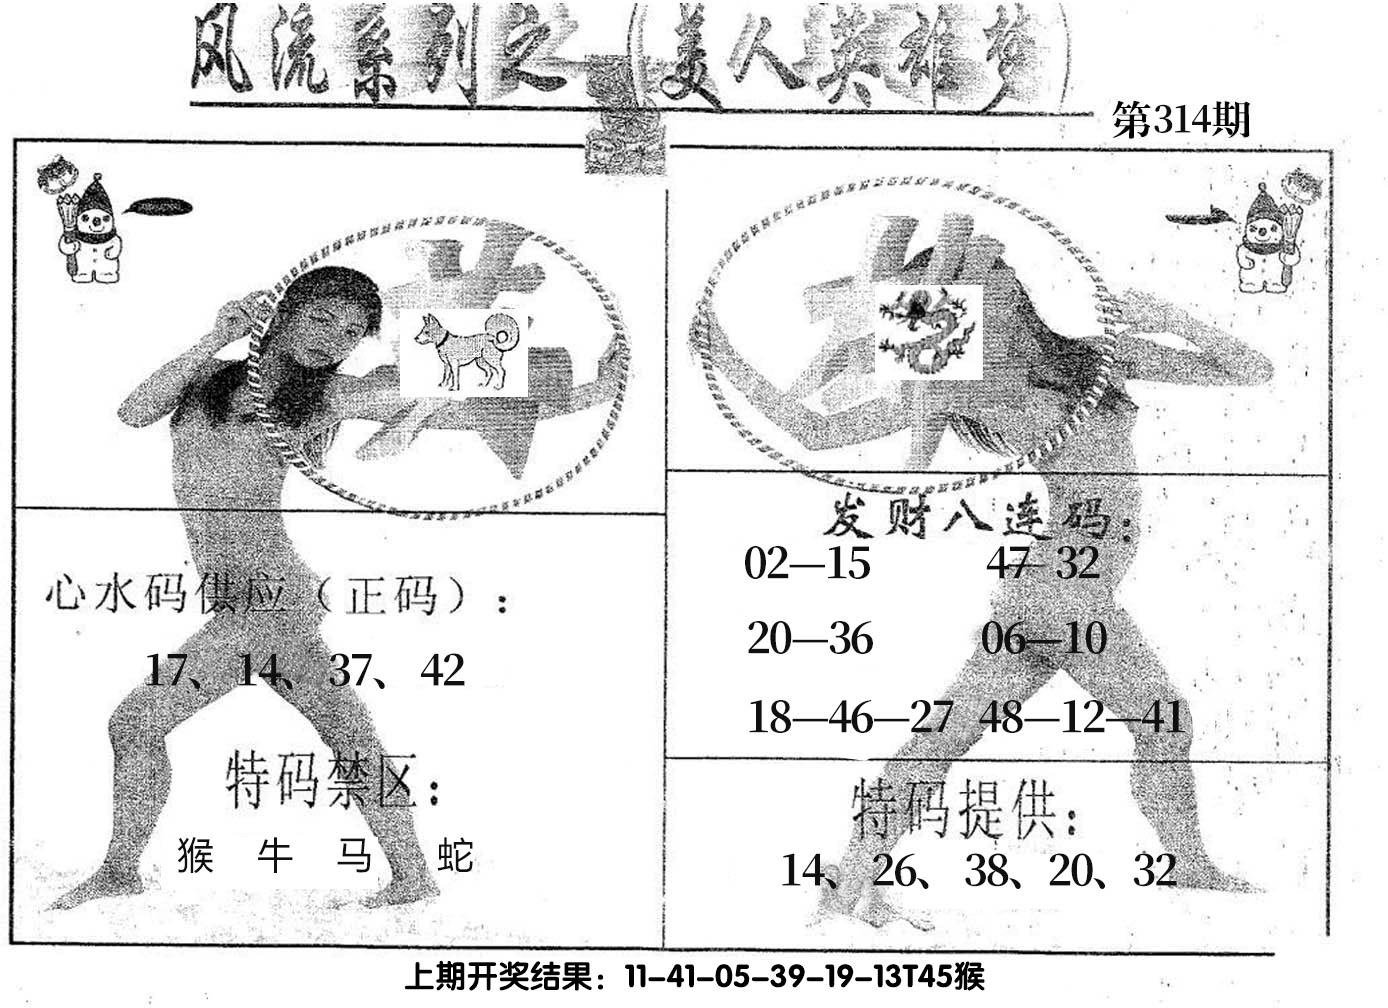 风流系列之（美人英雄梦）
第314期
心水码供应（正码）：
17、14、37、42
特码禁区：
猴 牛 马 蛇
发财八连码：
02—15 47—32
20—36 06—10
18—46—27 48—12—41
特码提供：
14、26、38、20、32
上期开奖结果：11-41-05-39-19-13T45猴